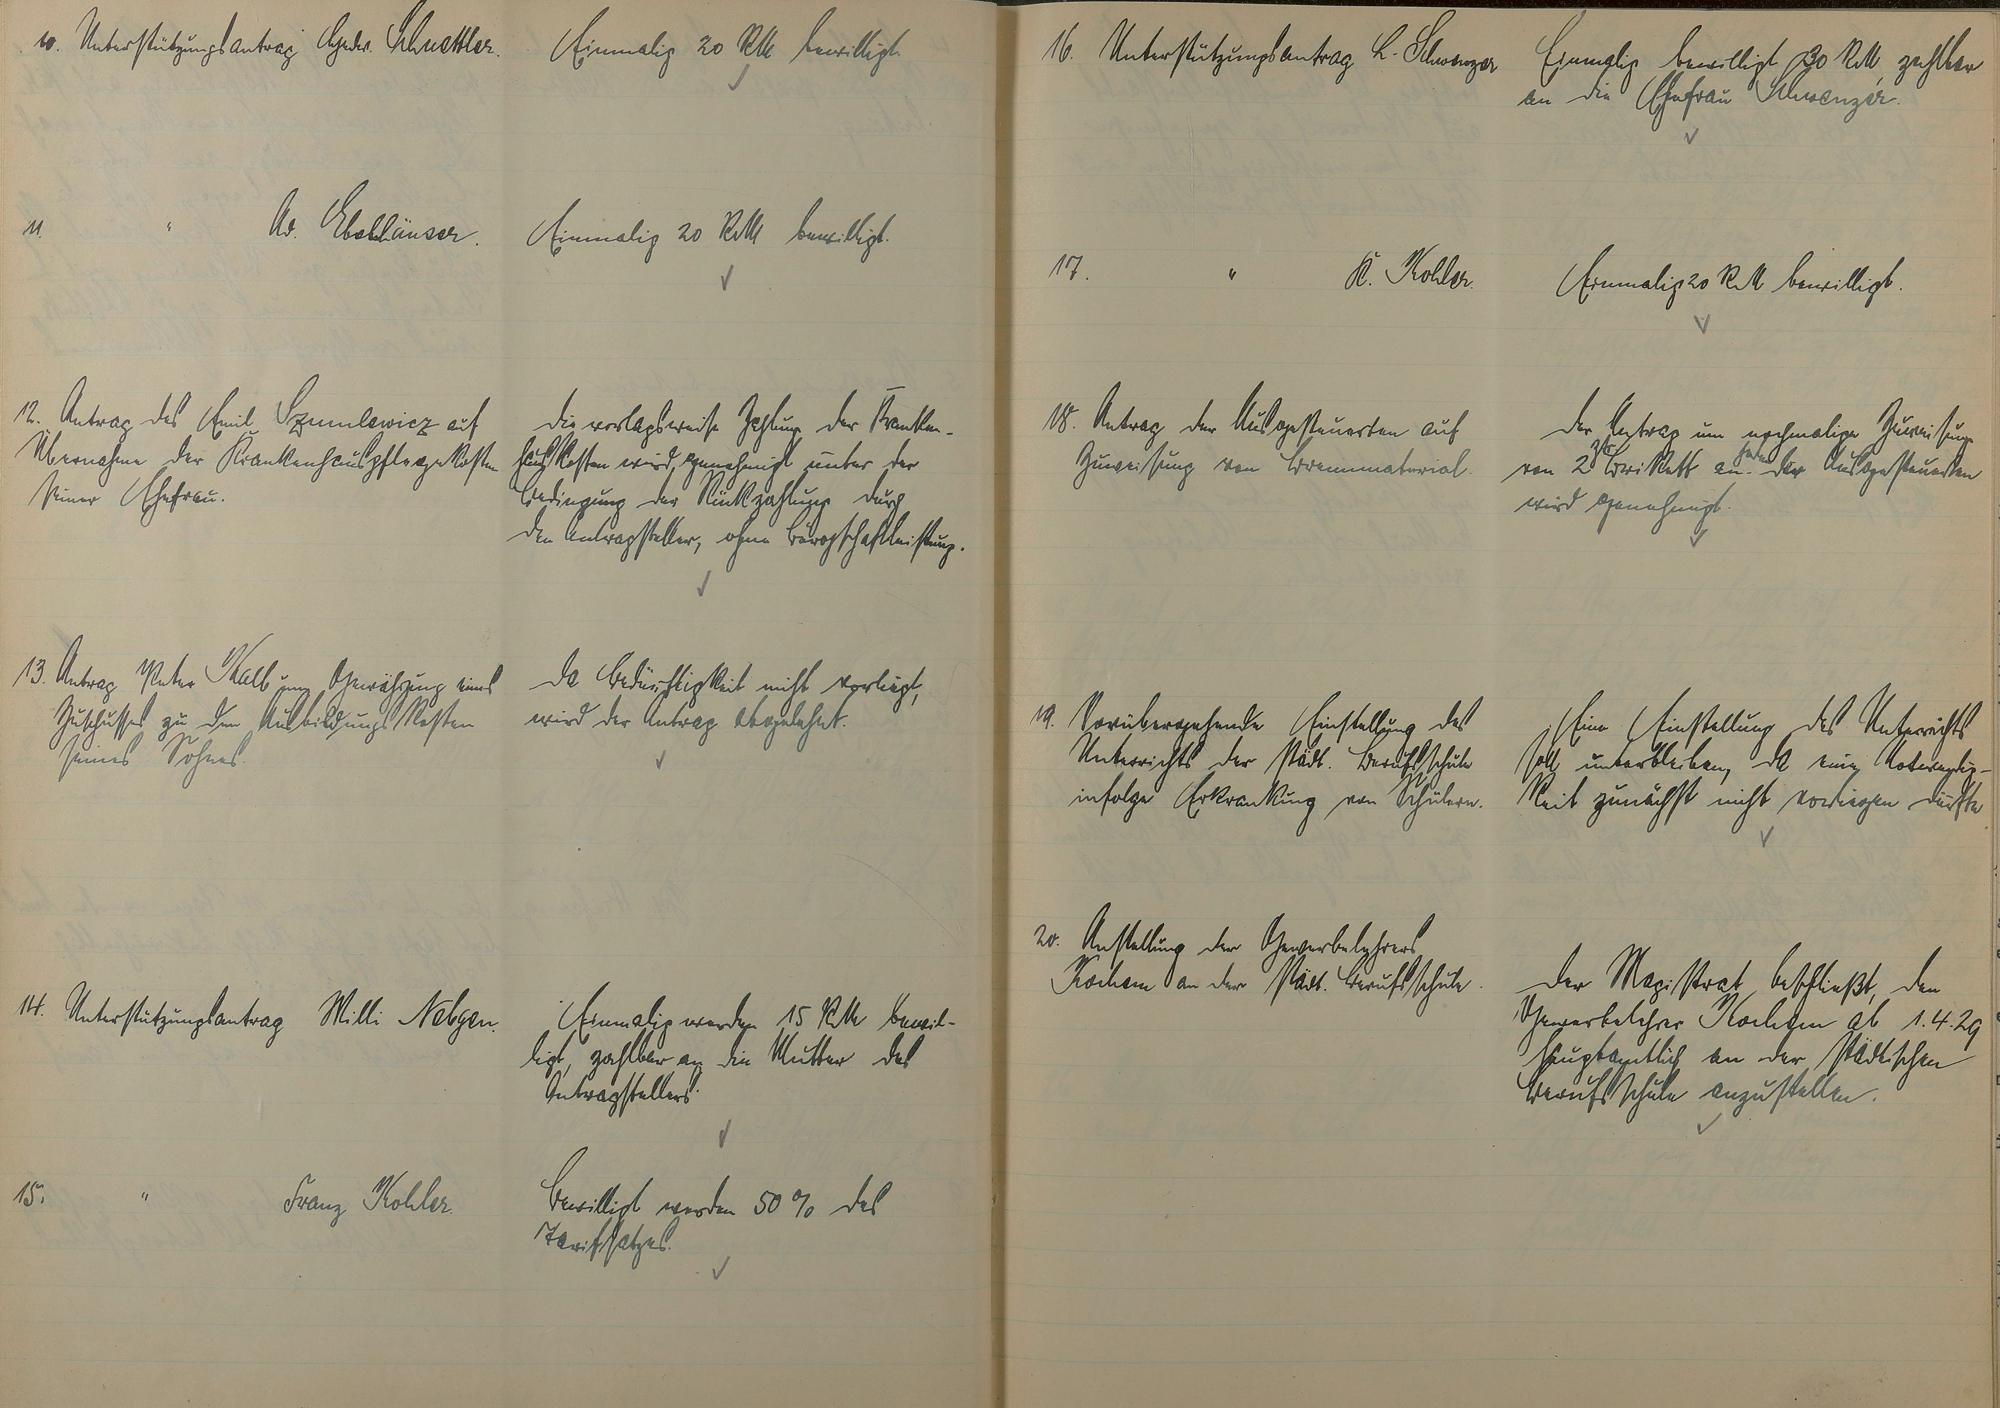 10. Unterstützungsantrag Gebr. Schuettler.
Einmalig 20 RM bewilligt.
11. " Ad. Ebelhäuser.
Einmalig 20 RM bewilligt.
12. Antrag des Emil Szumlewicz auf
Übernahme der Krankenhauspflegekosten
seiner Ehefrau.
Die vorlagsweise Zahlung der Kranken-
hauskosten wird genehmigt unter der
Bedingung der Rückzahlung durch
den Antragsteller, ohne Bürgschaftleistung.
13. Antrag Peter Kalb um Gewährung eines
Zuschusses zu den Ausbildungskosten
seines Sohnes.
Da Bedürftigkeit nicht vorliegt,
wird der Antrag abgelehnt.
14. Unterstützungsantrag Willi Nebgen.
Einmalig werden 15 RM bewil-
ligt, zahlbar an die Mutter des
Antragstellers.
15. " Franz Kohler.
Bewilligt werden 50 % des
Tarifsatzes.
16. Unterstützungsantrag L. Schwenzer
Einmalig bewilligt 30 RM, zahlbar
an die Ehefrau Schwenzer.
17. " K. Kohler.
Einmalig 20 RM bewilligt.
18. Antrag der Ausgesteuerten auf
Zuweisung von Brennmaterial.
Der Antrag um nochmalige Zuweisung
von 2 Ztr. Brikett an jeden der Ausgesteuerten
wird genehmigt.
19. Vorübergehende Einstellung des
Unterrichts der städt. Berufsschule
infolge Erkrankung von Schülern.
Eine Einstellung des Unterrichts
soll unterbleiben, da eine Notwendig-
keit zunächst nicht vorliegen dürfte
20. Anstellung der Gewerbelehrers
Kochem an der städt. Berufsschule.
Der Magistrat beschließt, den
Gewerbelehrer Kochem ab 1.4.29
hauptamtlich an der städtischen
Berufsschule anzustellen.